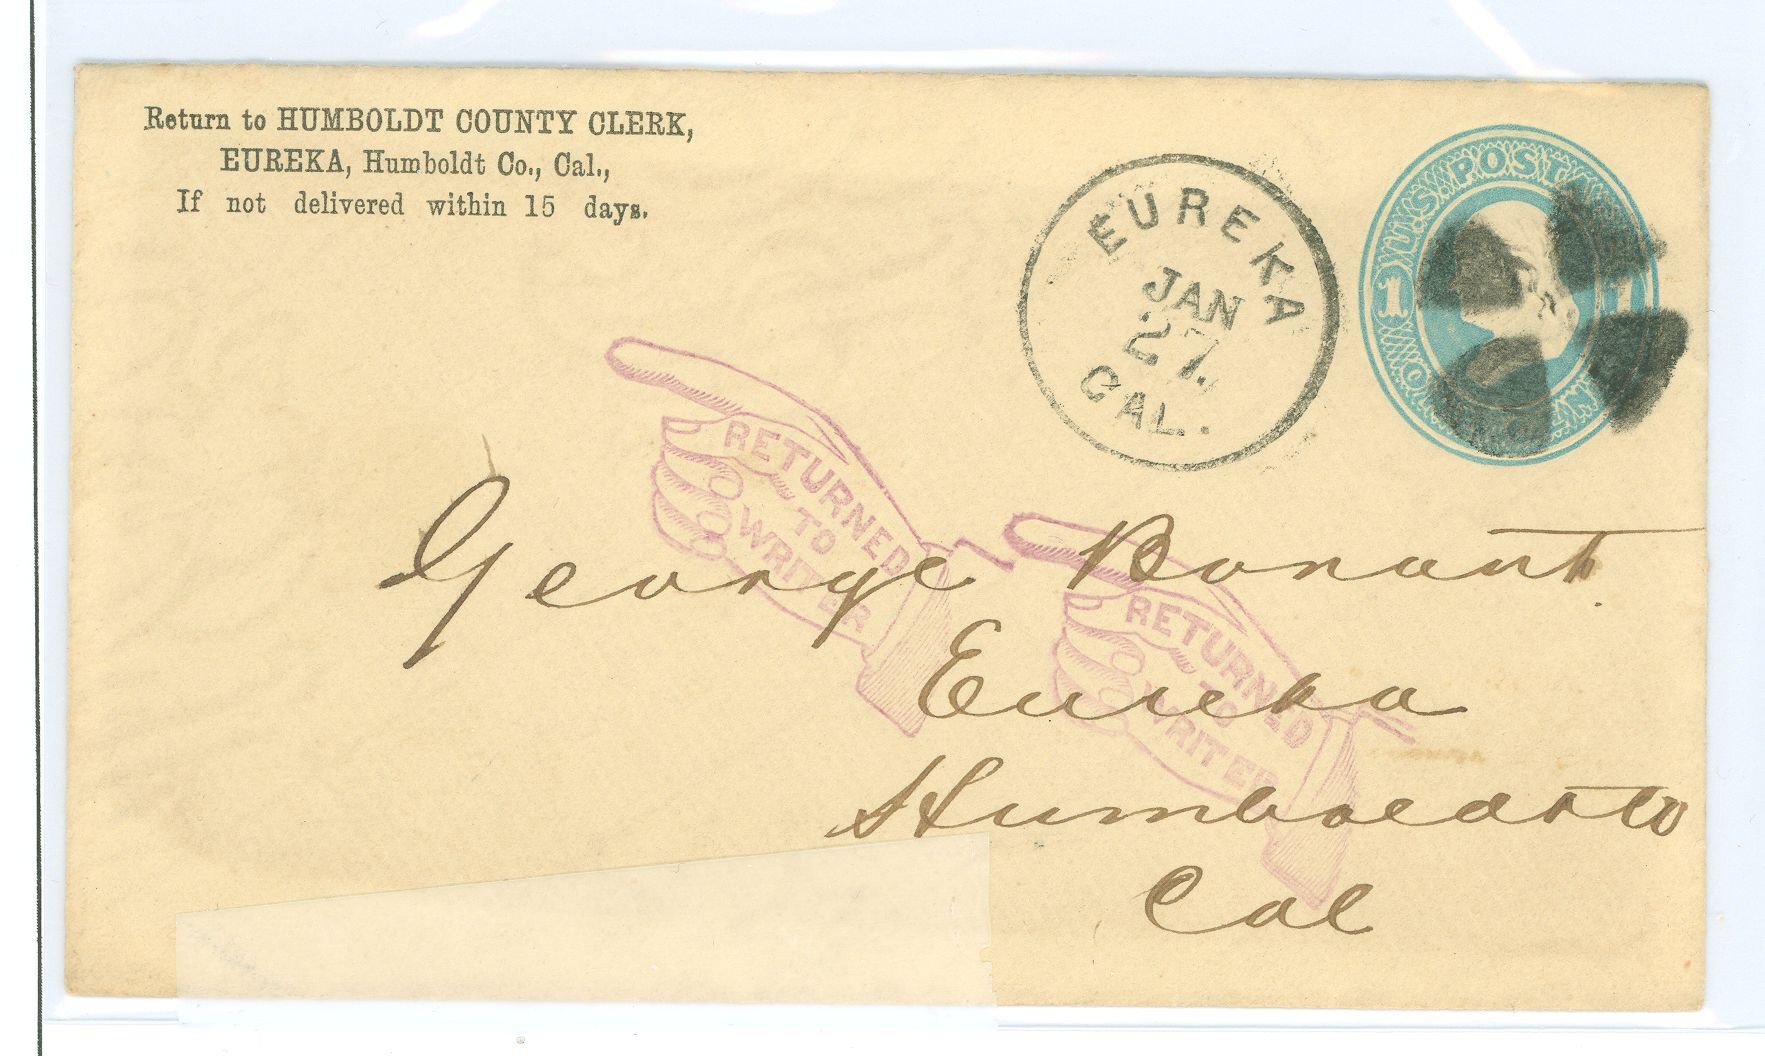 Return to HUMBOLDT COUNTY CLERK,
EUREKA, Humboldt Co., Cal.,
If not delivered within 15 days.
EUREKA
JAN
27.
CAL.
U.S. POST
1
1
RETURNED
TO
WRITER
RETURNED
TO
WRITER
George Bonant
Eureka
Humboldt Co
Cal